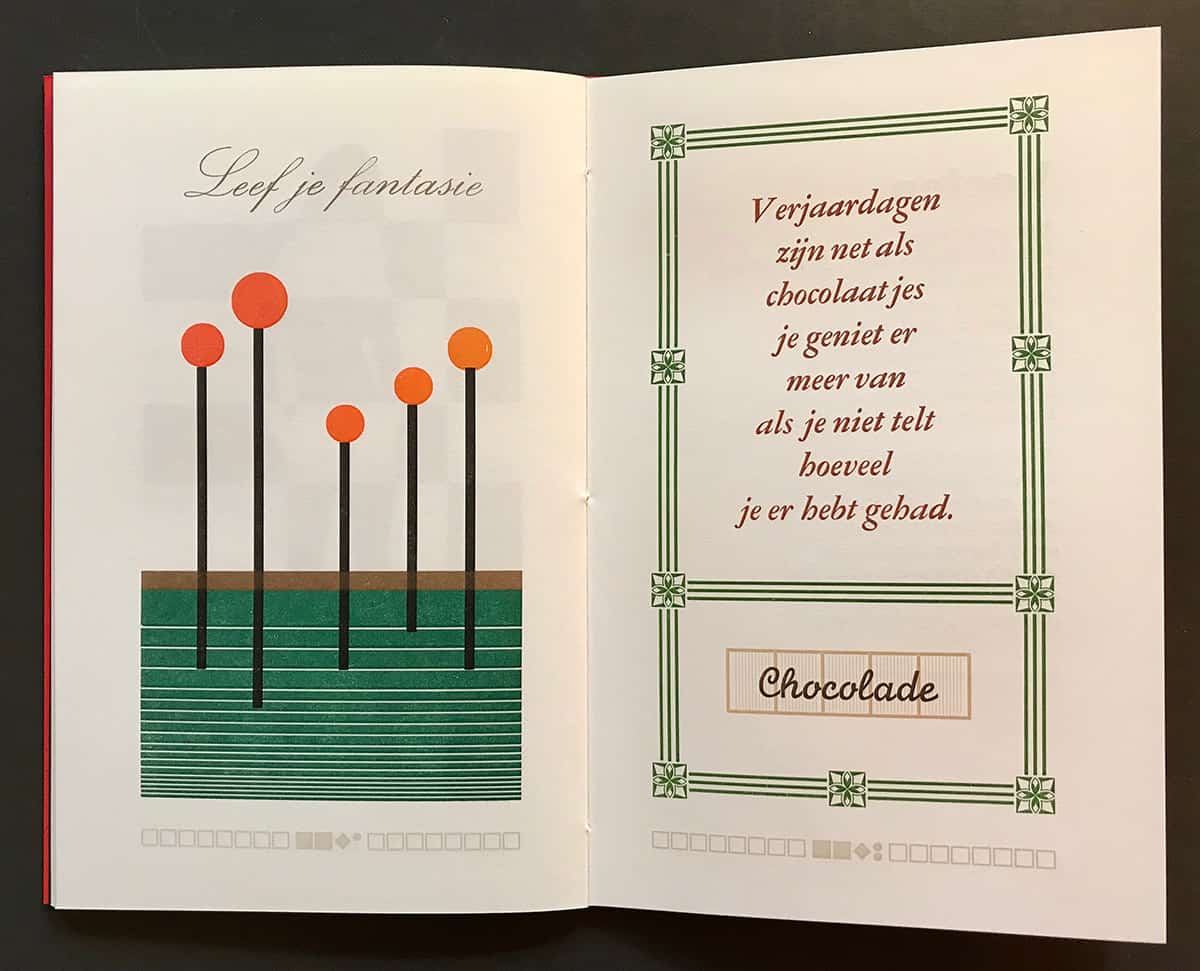 Leef je fantasie
Verjaardagen
zijn net als
chocolaatjes
je geniet er
meer van
als je niet telt
hoeveel
je er hebt gehad.
Chocolade